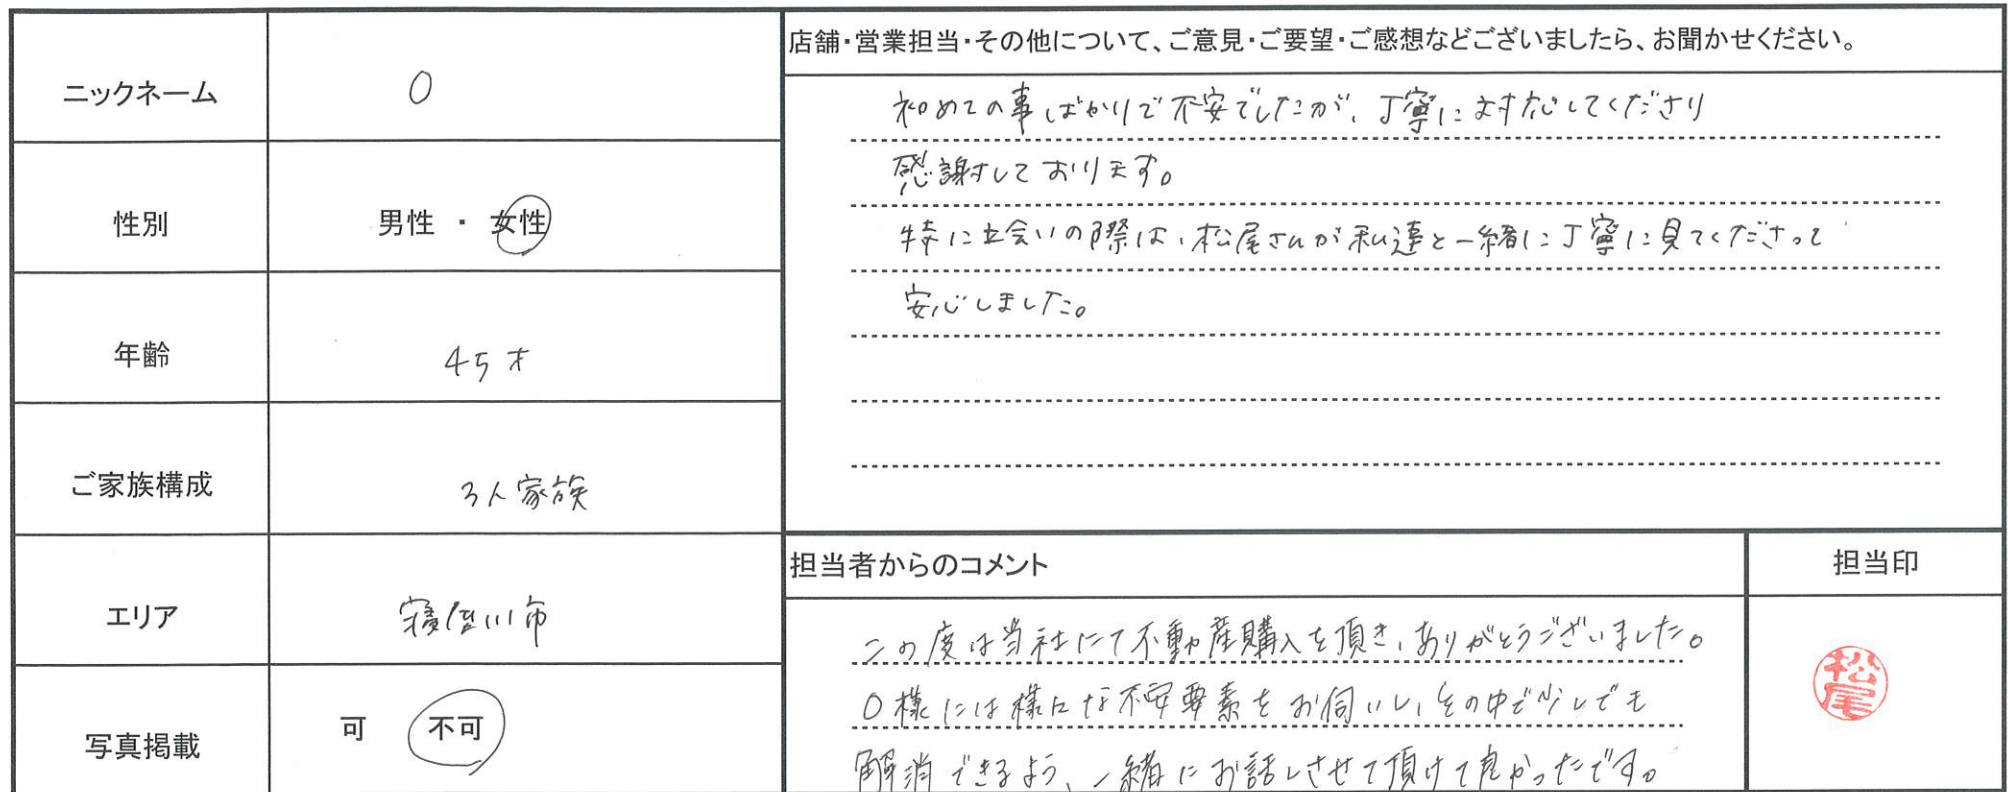 ニックネーム O
性別 男性 ・ 女性
年齢 45才
ご家族構成 3人家族
エリア 寝屋川市
写真掲載 可 不可
店舗・営業担当・その他について、ご意見・ご要望・ご感想などございましたら、お聞かせください。
初めての事ばかりで不安でしたが、丁寧に対応してくださり
感謝しております。
特に立会いの際は、松尾さんが私達と一緒に丁寧に見てくださって
安心しました。
担当者からのコメント
この度は当社にて不動産購入を頂き、ありがとうございました。
O様には様々な不安要素をお伺いし、その中で少しでも
解消できるよう、一緒にお話しさせて頂けて良かったです。
担当印
松尾